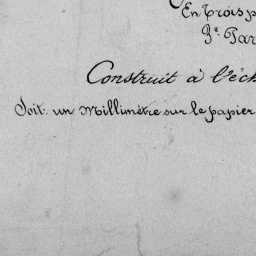 En Trois p
3e. Par
Construit à l'éch
Soit un Millimètre sur le papier